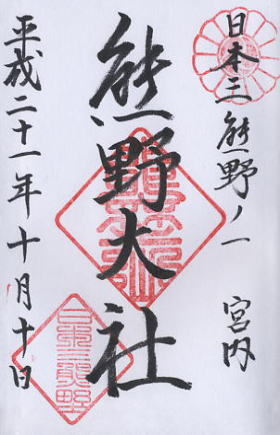 日本三熊野ノ一 宮内
熊野大社
平成二十一年十月十日
日本三熊野